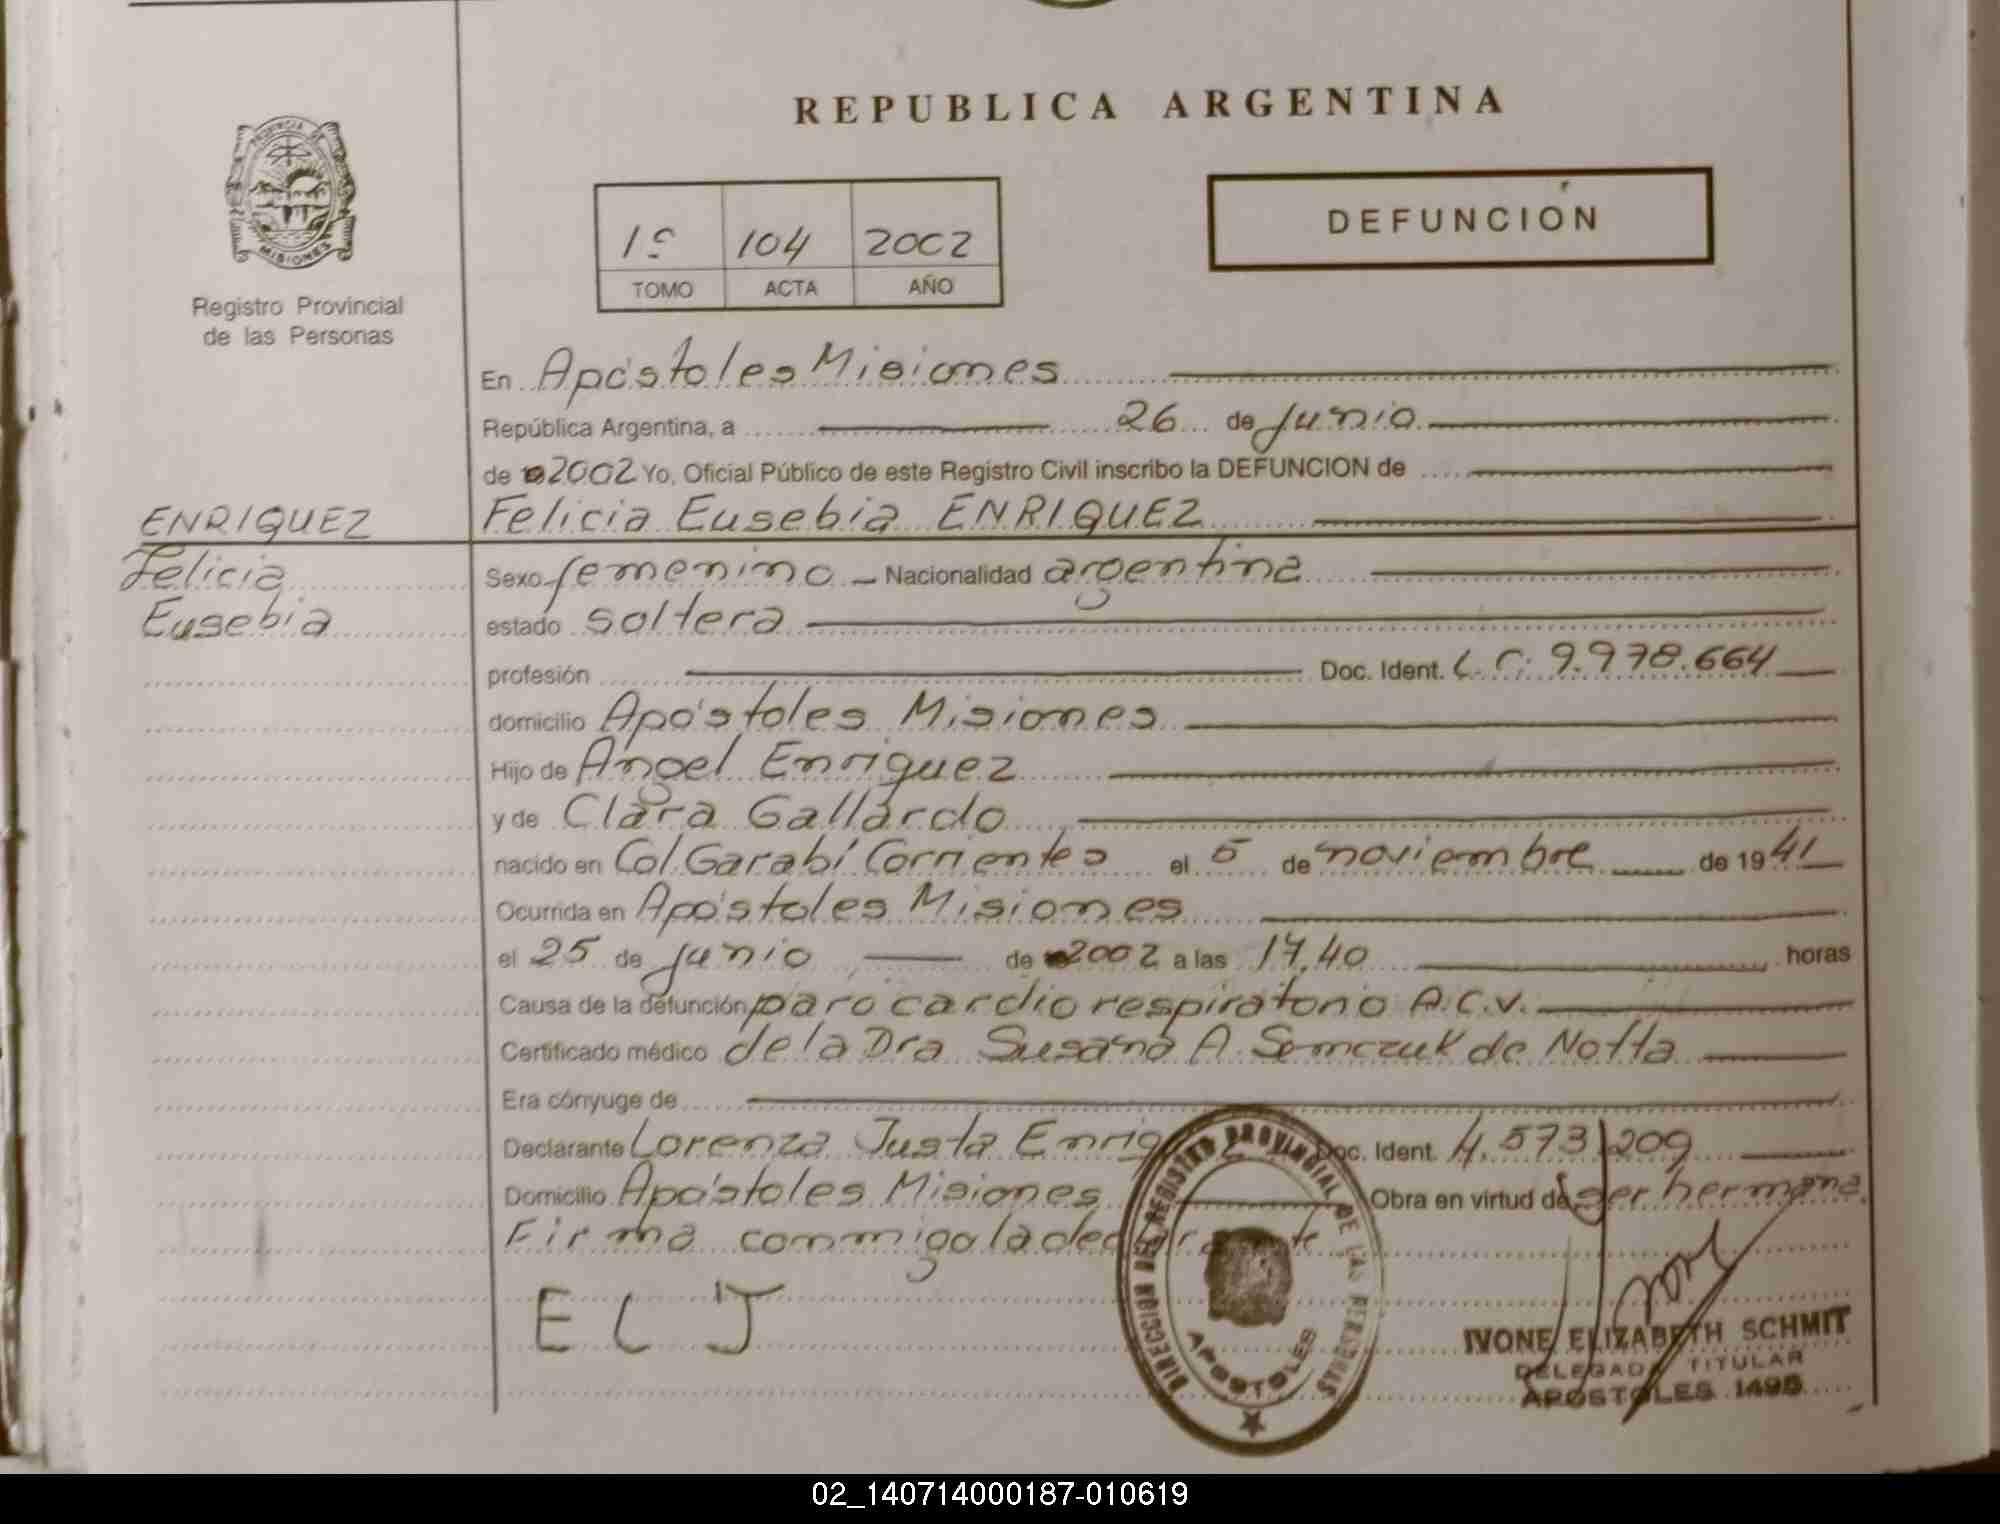 REPUBLICA ARGENTINA
PROVINCIA DE
MISIONES
Registro Provincial
de las Personas
1º 104 2002
TOMO ACTA AÑO
DEFUNCION
En Apóstoles Misiones
República Argentina, a 26 de Junio
de 2002 Yo, Oficial Público de este Registro Civil inscribo la DEFUNCION de
ENRIQUEZ Felicia Eusebia ENRIQUEZ
Felicia
Eusebia
Sexo femenino Nacionalidad argentina
estado soltera
profesión Doc. Ident. L.C. 9.978.664
domicilio Apóstoles Misiones
Hijo de Angel Enriquez
y de Clara Gallardo
nacido en Col. Garabí Corrientes el 5 de noviembre de 1941
Ocurrida en Apóstoles Misiones
el 25 de junio de 2002 a las 17,40 horas
Causa de la defunción paro cardio respiratorio A.C.V.
Certificado médico de la Dra Susana A. Semczuk de Notta
Era cónyuge de
Declarante Lorenza Justa Doc. Ident. 4.573.209
Domicilio Apóstoles Misiones Obra en virtud de ser hermana
Firma conmigo la declarante
E L J
DIRECCION DEL REGISTRO PROVINCIAL DE LAS PERSONAS
APOSTOLES
IVONE ELIZABETH SCHMIT
DELEGADA TITULAR
APOSTOLES 1495
02_140714000187-010619